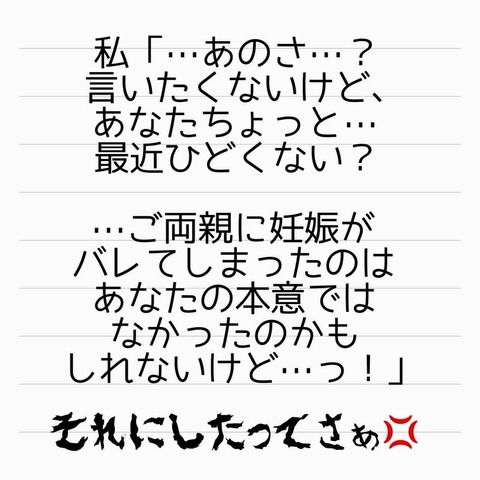 私「…あのさ…？
言いたくないけど、
あなたちょっと…
最近ひどくない？
…ご両親に妊娠が
バレてしまったのは
あなたの本意では
なかったのかも
しれないけど…っ！」
それにしたってさぁ💢